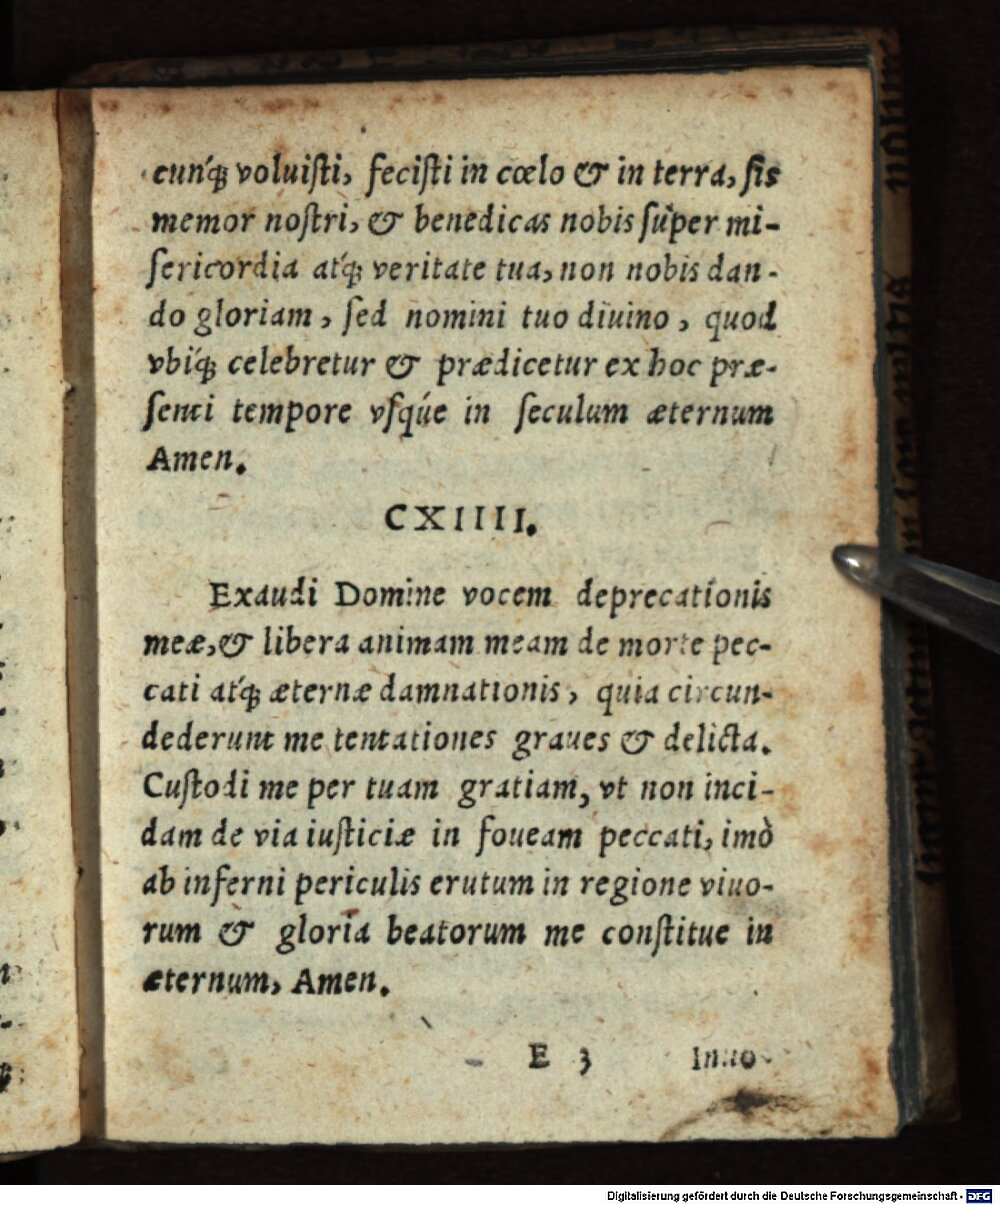 cunq́; voluiſti, feciſti in cœlo & in terra, ſis
memor noſtri, & benedicas nobis ſuper mi-
ſericordia atq́; veritate tua, non nobis dan-
do gloriam, ſed nomini tuo diuino, quod
vbiq́; celebretur & prædicetur ex hoc præ-
ſenti tempore vſqúe in ſeculum æternum
Amen.
CXIIII.
Exaudi Domine vocem deprecationis
meæ, & libera animam meam de morte pec-
cati atq́; æternæ damnationis, quia circun-
dederunt me tentationes graues & delicta.
Cuſtodi me per tuam gratiam, vt non inci-
dam de via iuſticiæ in foueam peccati, imò
ab inferni periculis erutum in regione viuo-
rum & gloria beatorum me conſtitue in
æternum, Amen.
E 3
Digitalisierung gefördert durch die Deutsche Forschungsgemeinschaft - DFG